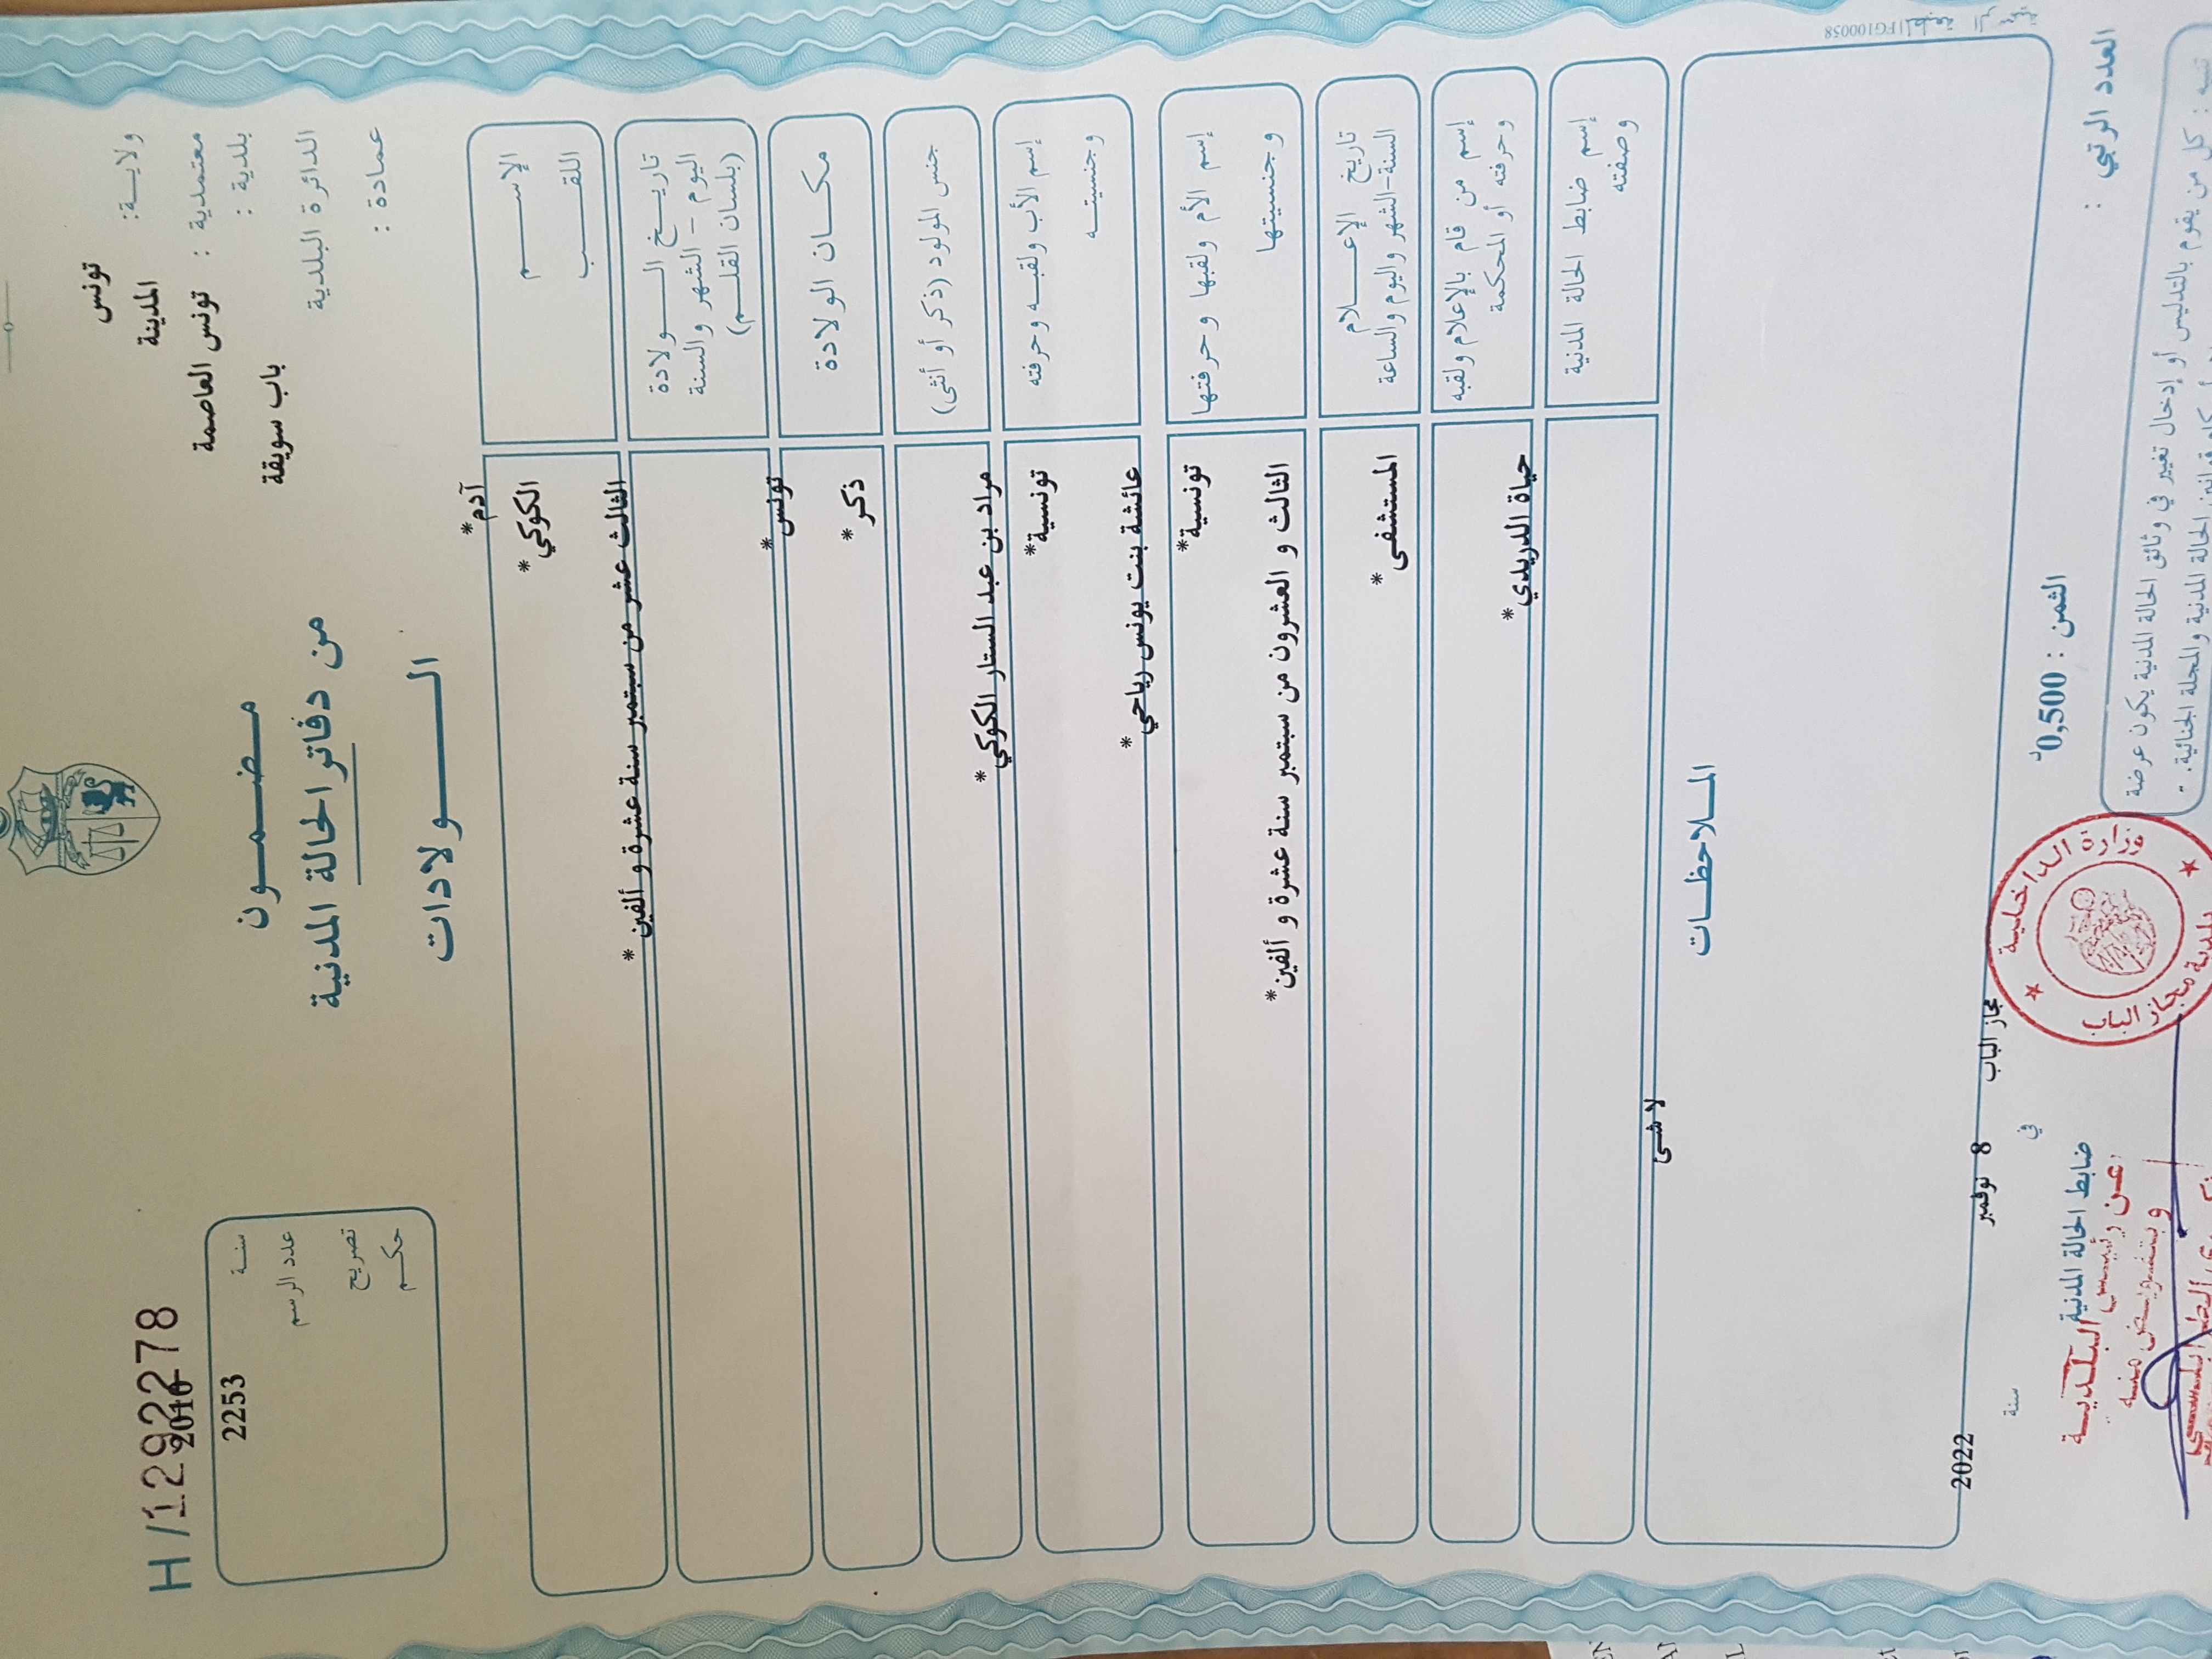 H/12922278
2016
سنة
2253
عدد الرسم
تصريح
حكم
تونس
ولاية:
المدينة
معتمدية : تونس العاصمة
بلدية :
باب سويقة
الدائرة البلدية
عمادة :
مضمون
من دفاتر الحالة المدنية
الولادات
الإسم
آدم*
اللقب
الكوكي*
تاريخ الولادة
اليوم - الشهر والسنة
(بلسان القلم)
الثالث عشر من سبتمبر سنة عشرة و ألفين*
مكان الولادة
تونس*
جنس المولود (ذكر أو أنثى)
ذكر*
إسم الأب ولقبه وحرفته
مراد بن عبد الستار الكوكي*
وجنسيته
تونسية*
إسم الأم ولقبها وحرفتها
عائشة بنت يونس رياحي*
وجنسيتها
تونسية*
تاريخ الإعلام
السنة-الشهر واليوم والساعة
الثالث و العشرون من سبتمبر سنة عشرة و ألفين*
إسم من قام بالإعلام ولقبه
وحرفته أو المحكمة
المستشفى*
إسم ضابط الحالة المدنية
وصفته
حياة الدريدي*
الملاحظات
لا شئ
مجاز الباب
8 نوفمبر
2022
في
سنة
ضابط الحالة المدنية
عن رئيس البلدية
وبتفويض منه
وزارة الداخلية
بلدية مجاز الباب
الثمن : 0,500د
العدد الرتبي :
كل من يقوم بالتدليس أو إدخال تغيير في وثائق الحالة المدنية يكون عرضة
الحالة المدنية والمجلة الجنائية.
FG100058